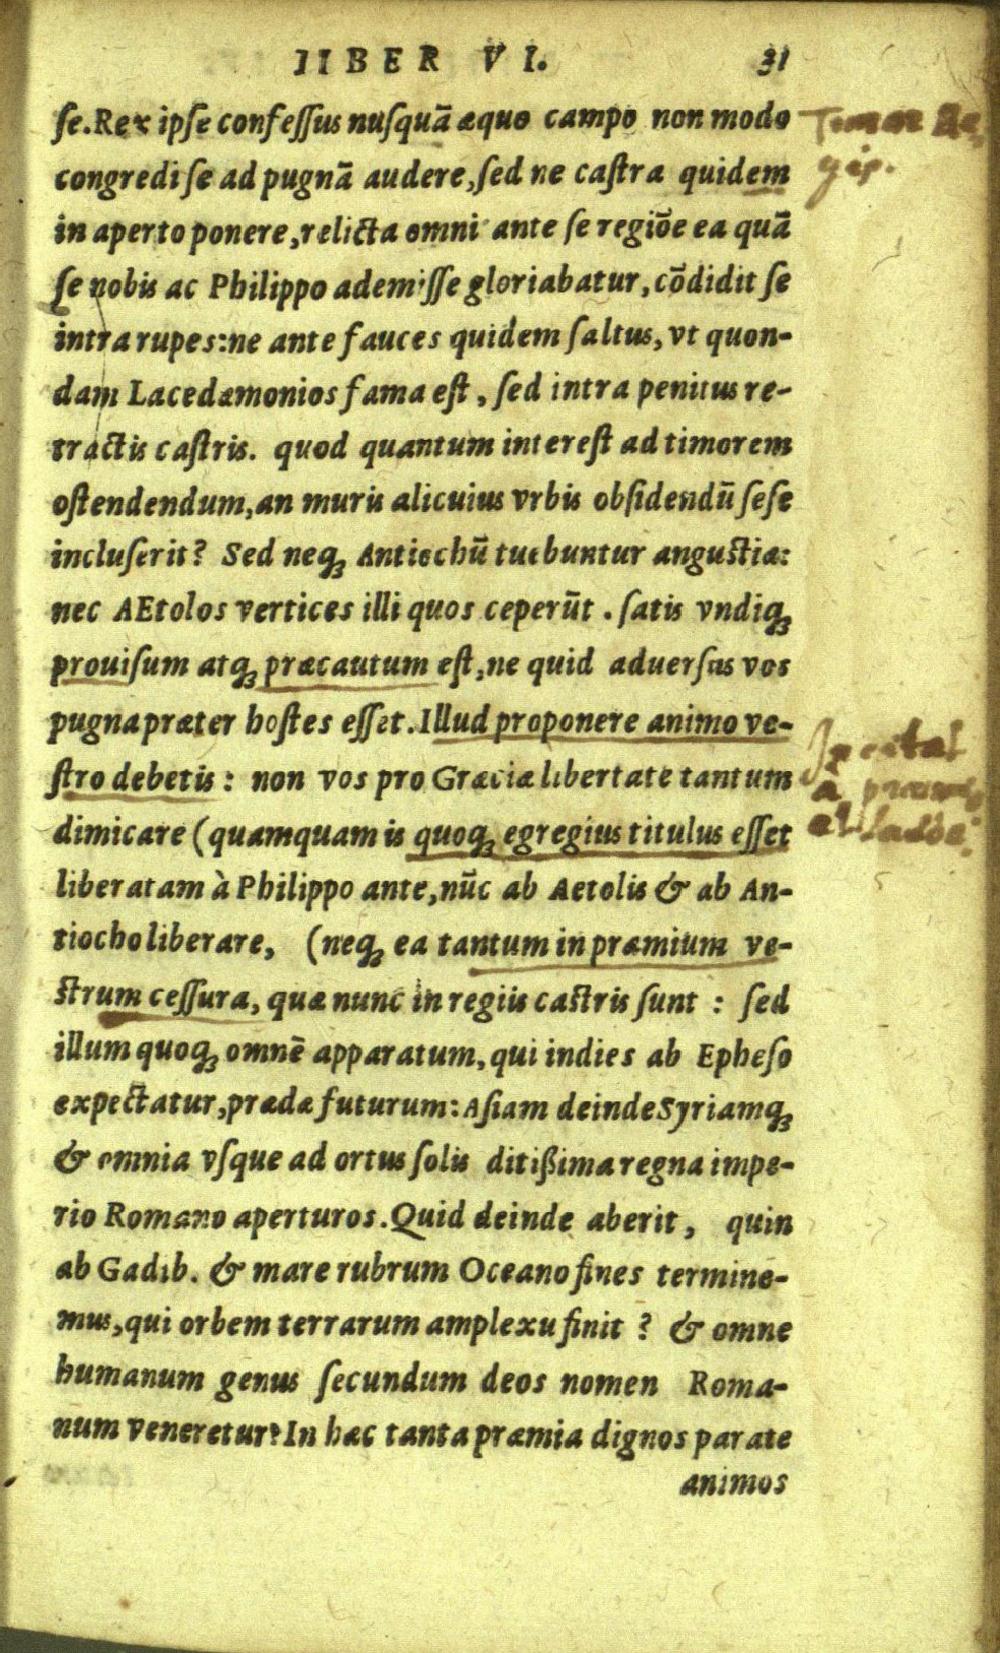 IIBER VI. 31
ſe. Rex ipſe confeſſus nuſquā æquo campo non modo
congredi ſe ad pugnā audere, ſed ne caſtra quidem
in aperto ponere, relicta omni ante ſe regiōe ea quā
ſe nobis ac Philippo ademiſſe gloriabatur, cōdidit ſe
intra rupes: ne ante fauces quidem ſaltus, vt quon-
dam Lacedæmonios fama eſt, ſed intra penitus re-
tractis caſtris. quod quantum intereſt ad timorem
oſtendendum, an muris alicuius vrbis obſidendū ſeſe
incluſerit? Sed neqꝫ Antiochū tuebuntur anguſtiæ:
nec AEtolos vertices illi quos ceperūt. ſatis vndiqꝫ
prouiſum atqꝫ præcautum eſt, ne quid aduerſus vos
pugna præter hoſtes eſſet. Illud proponere animo ve-
ſtro debetis: non vos pro Græciæ libertate tantum
dimicare (quamquam is quoqꝫ egregius titulus eſſet
liberatam à Philippo ante, nūc ab Aetolis & ab An-
tiocho liberare, (neqꝫ ea tantum in præmium ve-
ſtrum ceſſura, quæ nunc in regiis caſtris ſunt: ſed
illum quoqꝫ omnē apparatum, qui indies ab Epheſo
expectatur, prædæ futurum: Aſiam deinde Syriamqꝫ
& omnia vſque ad ortus ſolis ditißima regna impe-
rio Romano aperturos. Quid deinde aberit, quin
ab Gadib. & mare rubrum Oceano fines termine-
mus, qui orbem terrarum amplexu finit? & omne
humanum genus ſecundum deos nomen Roma-
num veneretur? In hæc tanta præmia dignos parate
animos
Timor Re
gis.
a
et laude.